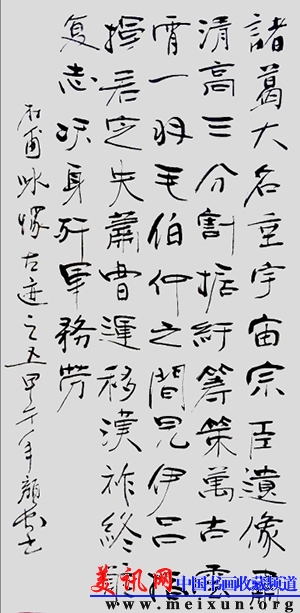 諸葛大名垂宇宙宗臣遺像肅
清高三分割据紆筹策萬古雲
霄一羽毛伯仲之間見伊吕指
揮若定失蕭曹運移漢祚終難
复志决身歼军務劳
杜甫咏懷古迹之五甲午年顏書
美讯网 中国书画收藏频道
www.meixun.org